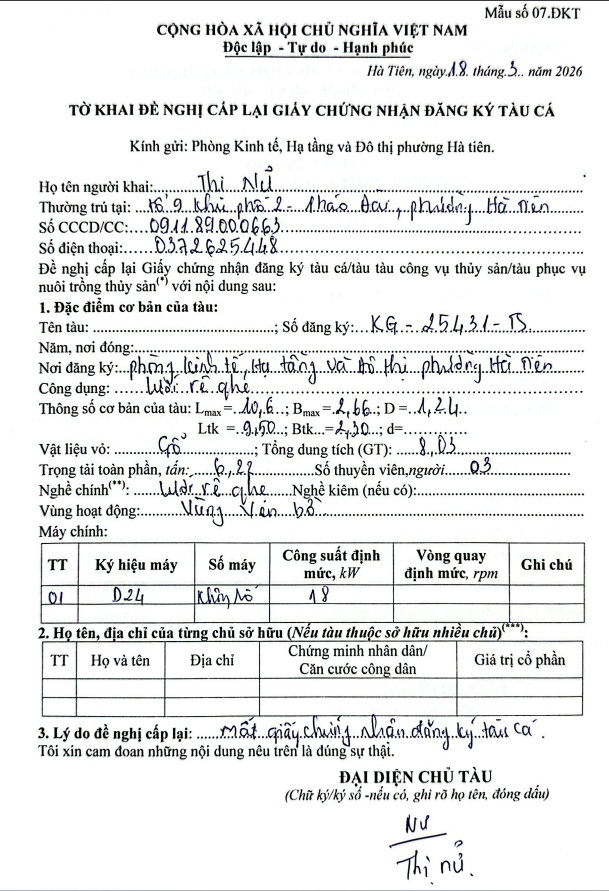 Mẫu số 07.ĐKT
CỘNG HÒA XÃ HỘI CHỦ NGHĨA VIỆT NAM
Độc lập - Tự do - Hạnh phúc
Hà Tiên, ngày 18 tháng 3 năm 2026
TỜ KHAI ĐỀ NGHỊ CẤP LẠI GIẤY CHỨNG NHẬN ĐĂNG KÝ TÀU CÁ
Kính gửi: Phòng Kinh tế, Hạ tầng và Đô thị phường Hà tiên.
Họ tên người khai: Thị Nử
Thường trú tại: tổ 9 khu phố 2 - Pháo Đài, phường Hà Tiên
Số CCCD/CC: 091189000663
Số điện thoại: 0372625448
Đề nghị cấp lại Giấy chứng nhận đăng ký tàu cá/tàu công vụ thủy sản/tàu phục vụ
nuôi trồng thủy sản(*) với nội dung sau:
1. Đặc điểm cơ bản của tàu:
Tên tàu: ; Số đăng ký: KG - 25431 - TS
Năm, nơi đóng:
Nơi đăng ký: phòng kinh tế, Hạ tầng và đô thị phường Hà Tiên
Công dụng: lưới rê ghẹ
Thông số cơ bản của tàu: Lmax = 10,6 ; Bmax = 2,66 ; D = 1,24
Ltk = 9,50 ; Btk = 2,30 ; d=
Vật liệu vỏ: Gỗ ; Tổng dung tích (GT): 8,03
Trọng tải toàn phần, tấn: 6,22 Số thuyền viên, người 03
Nghề chính(**): lưới rê ghẹ Nghề kiêm (nếu có):
Vùng hoạt động: Vùng ven bờ
Máy chính:
TT Ký hiệu máy Số máy Công suất định mức, kW Vòng quay định mức, rpm Ghi chú
01 D24 không số 18
2. Họ tên, địa chỉ của từng chủ sở hữu (Nếu tàu thuộc sở hữu nhiều chủ)(***):
TT Họ và tên Địa chỉ Chứng minh nhân dân/ Căn cước công dân Giá trị cổ phần
3. Lý do đề nghị cấp lại: mất giấy chứng nhận đăng ký tàu cá.
Tôi xin cam đoan những nội dung nêu trên là đúng sự thật.
ĐẠI DIỆN CHỦ TÀU
(Chữ ký/ký số -nếu có, ghi rõ họ tên, đóng dấu)
Nử
Thị nử.